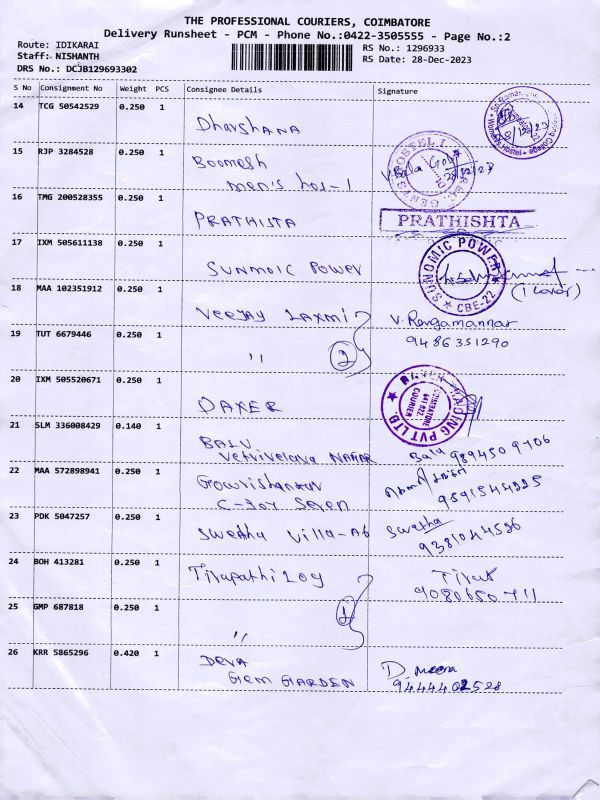 THE PROFESSIONAL COURIERS, COIMBATORE
Delivery Runsheet - PCM - Phone No.:0422-3505555 - Page No.:2
Route: IDIKARAI
RS No.: 1296933
Staff: NISHANTH
RS Date: 28-Dec-2023
DRS No.: DCJB129693302
S No Consignment No Weight PCS Consignee Details Signature
14 TCG 50542529 0.250 1 Dharshana
15 RJP 3284528 0.250 1 Boomesh
men's hos-1
16 TMG 200528355 0.250 1 PRATHISTA PRATHISHTA
17 IXM 505611138 0.250 1 SUNMOIC POWER SUNOMIC POWER CBE-22
18 MAA 102351912 0.250 1 VEEJAY LAXMI V. Rangamannar
9486351290
19 TUT 6679446 0.250 1 " 2
20 IXM 505520671 0.250 1 DAXER TRADING PVT LTD. COIMBATORE 641 022. COURIER
21 SLM 336008429 0.140 1 BALU Balu 9894509706
Vetrivelava NAGAR
22 MAA 572898941 0.250 1 Gowrishankar
C-304 Seven 9591544225
23 PDK 5047257 0.250 1 Swetha Villa-A6 Swetha
9381044596
24 BOH 413281 0.250 1 Tirupathi log Tirut
9080650711
25 GMP 687818 0.250 1 "
26 KRR 5865296 0.420 1 DEVA D. Meera
Gem GARDEN 9444402528